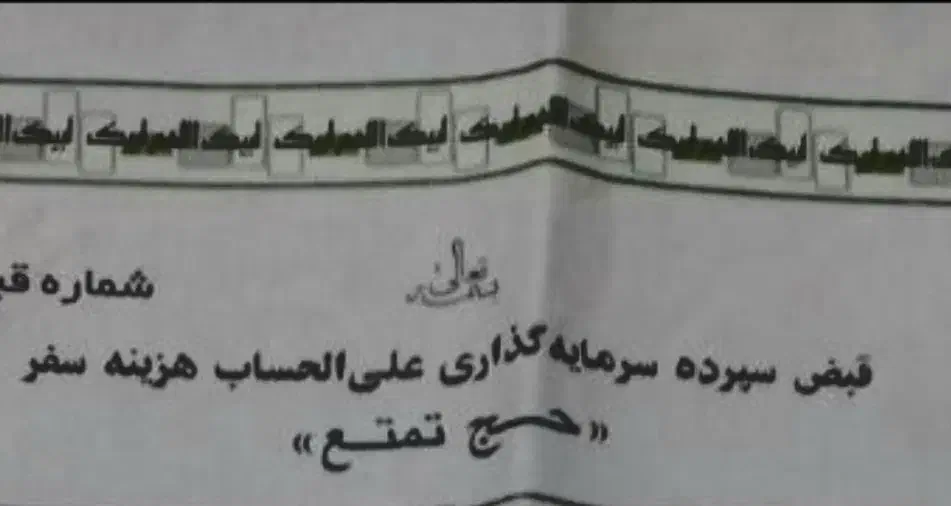 لبیک اللهم لبیک لبیک اللهم لبیک لبیک اللهم لبیک لبیک اللهم لبیک
بسمه تعالی
شماره
قبض سپرده سرمایه‌گذاری علی‌الحساب هزینه سفر
«حج تمتع»